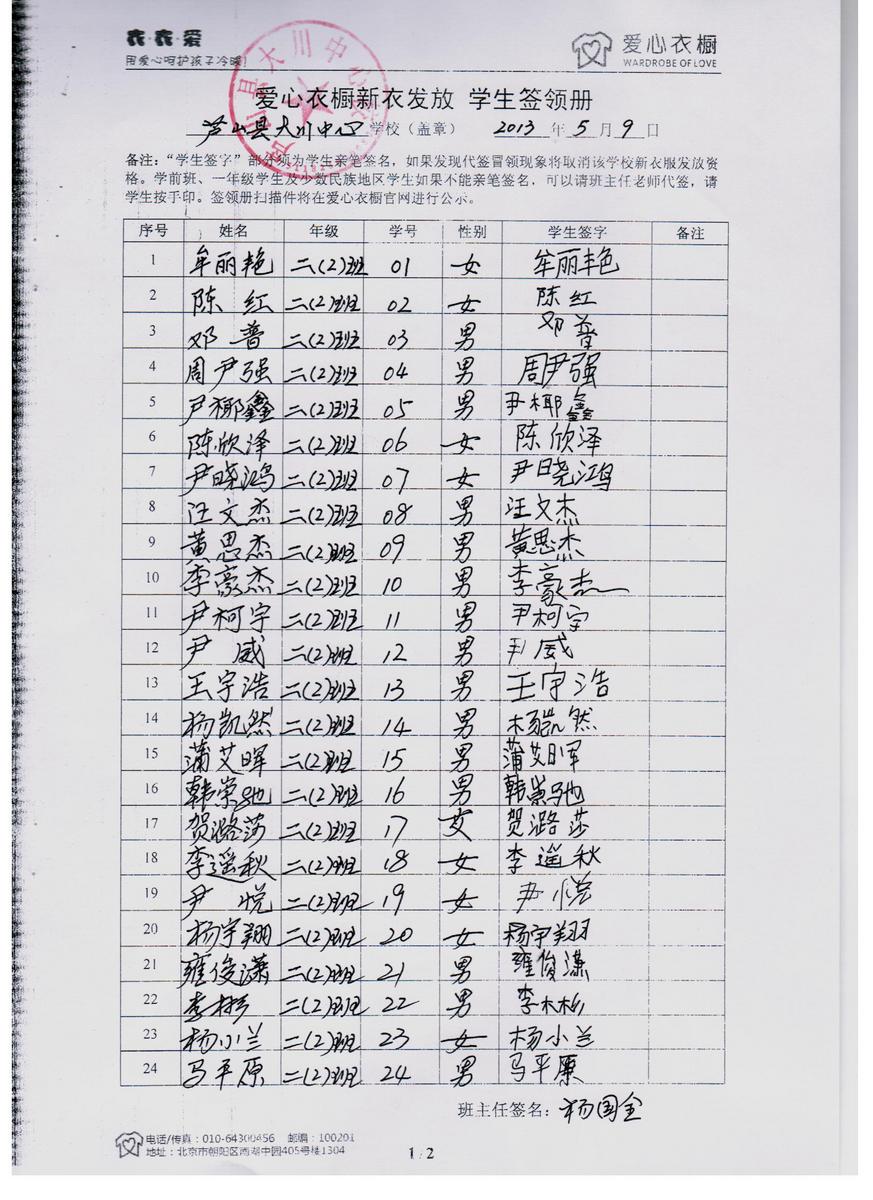 衣·衣·爱
用爱心呵护孩子冷暖!
爱心衣橱
WARDROBE OF LOVE
爱心衣橱新衣发放 学生签领册
芦山县大川中心学校（盖章） 2013 年 5 月 9 日
备注：“学生签字”部分须为学生亲笔签名，如果发现代签冒领现象将取消该学校新衣服发放资
格。学前班、一年级学生及少数民族地区学生如果不能亲笔签名，可以请班主任老师代签，请
学生按手印。签领册扫描件将在爱心衣橱官网进行公示。
序号 姓名 年级 学号 性别 学生签字 备注
1 牟丽艳 二(2)班 01 女 牟丽艳
2 陈红 二(2)班 02 女 陈红
3 邓普 二(2)班 03 男 邓普
4 周尹强 二(2)班 04 男 周尹强
5 尹椰鑫 二(2)班 05 男 尹椰鑫
6 陈欣泽 二(2)班 06 女 陈欣泽
7 尹晓鸿 二(2)班 07 女 尹晓鸿
8 汪文杰 二(2)班 08 男 汪文杰
9 黄思杰 二(2)班 09 男 黄思杰
10 李豪杰 二(2)班 10 男 李豪杰
11 尹柯宇 二(2)班 11 男 尹柯宇
12 尹威 二(2)班 12 男 尹威
13 王宇浩 二(2)班 13 男 王宇浩
14 杨凯然 二(2)班 14 男 杨凯然
15 蒲艾晖 二(2)班 15 男 蒲艾晖
16 韩崇驰 二(2)班 16 男 韩崇驰
17 贺潞莎 二(2)班 17 女 贺潞莎
18 李遥秋 二(2)班 18 女 李遥秋
19 尹悦 二(2)班 19 女 尹悦
20 杨宇翔 二(2)班 20 女 杨宇翔
21 雍俊潇 二(2)班 21 男 雍俊潇
22 李彬 二(2)班 22 男 李彬
23 杨小兰 二(2)班 23 女 杨小兰
24 马平原 二(2)班 24 男 马平原
班主任签名：杨国全
电话/传真：010-64300456 邮编：100201
地址：北京市朝阳区南湖中园405号楼1304
1 / 2